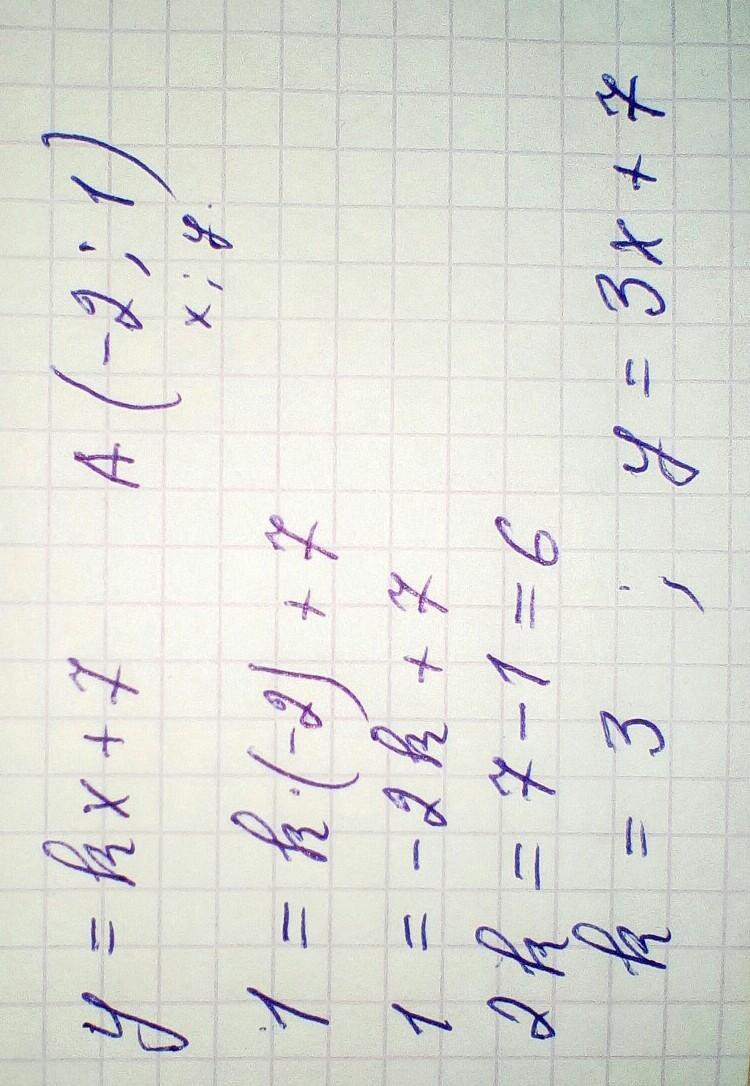 y = kx + 7 A(-2; 1)
x; y
1 = k·(-2) + 7
1 = -2k + 7
2k = 7 - 1 = 6
k = 3 ; y = 3x + 7